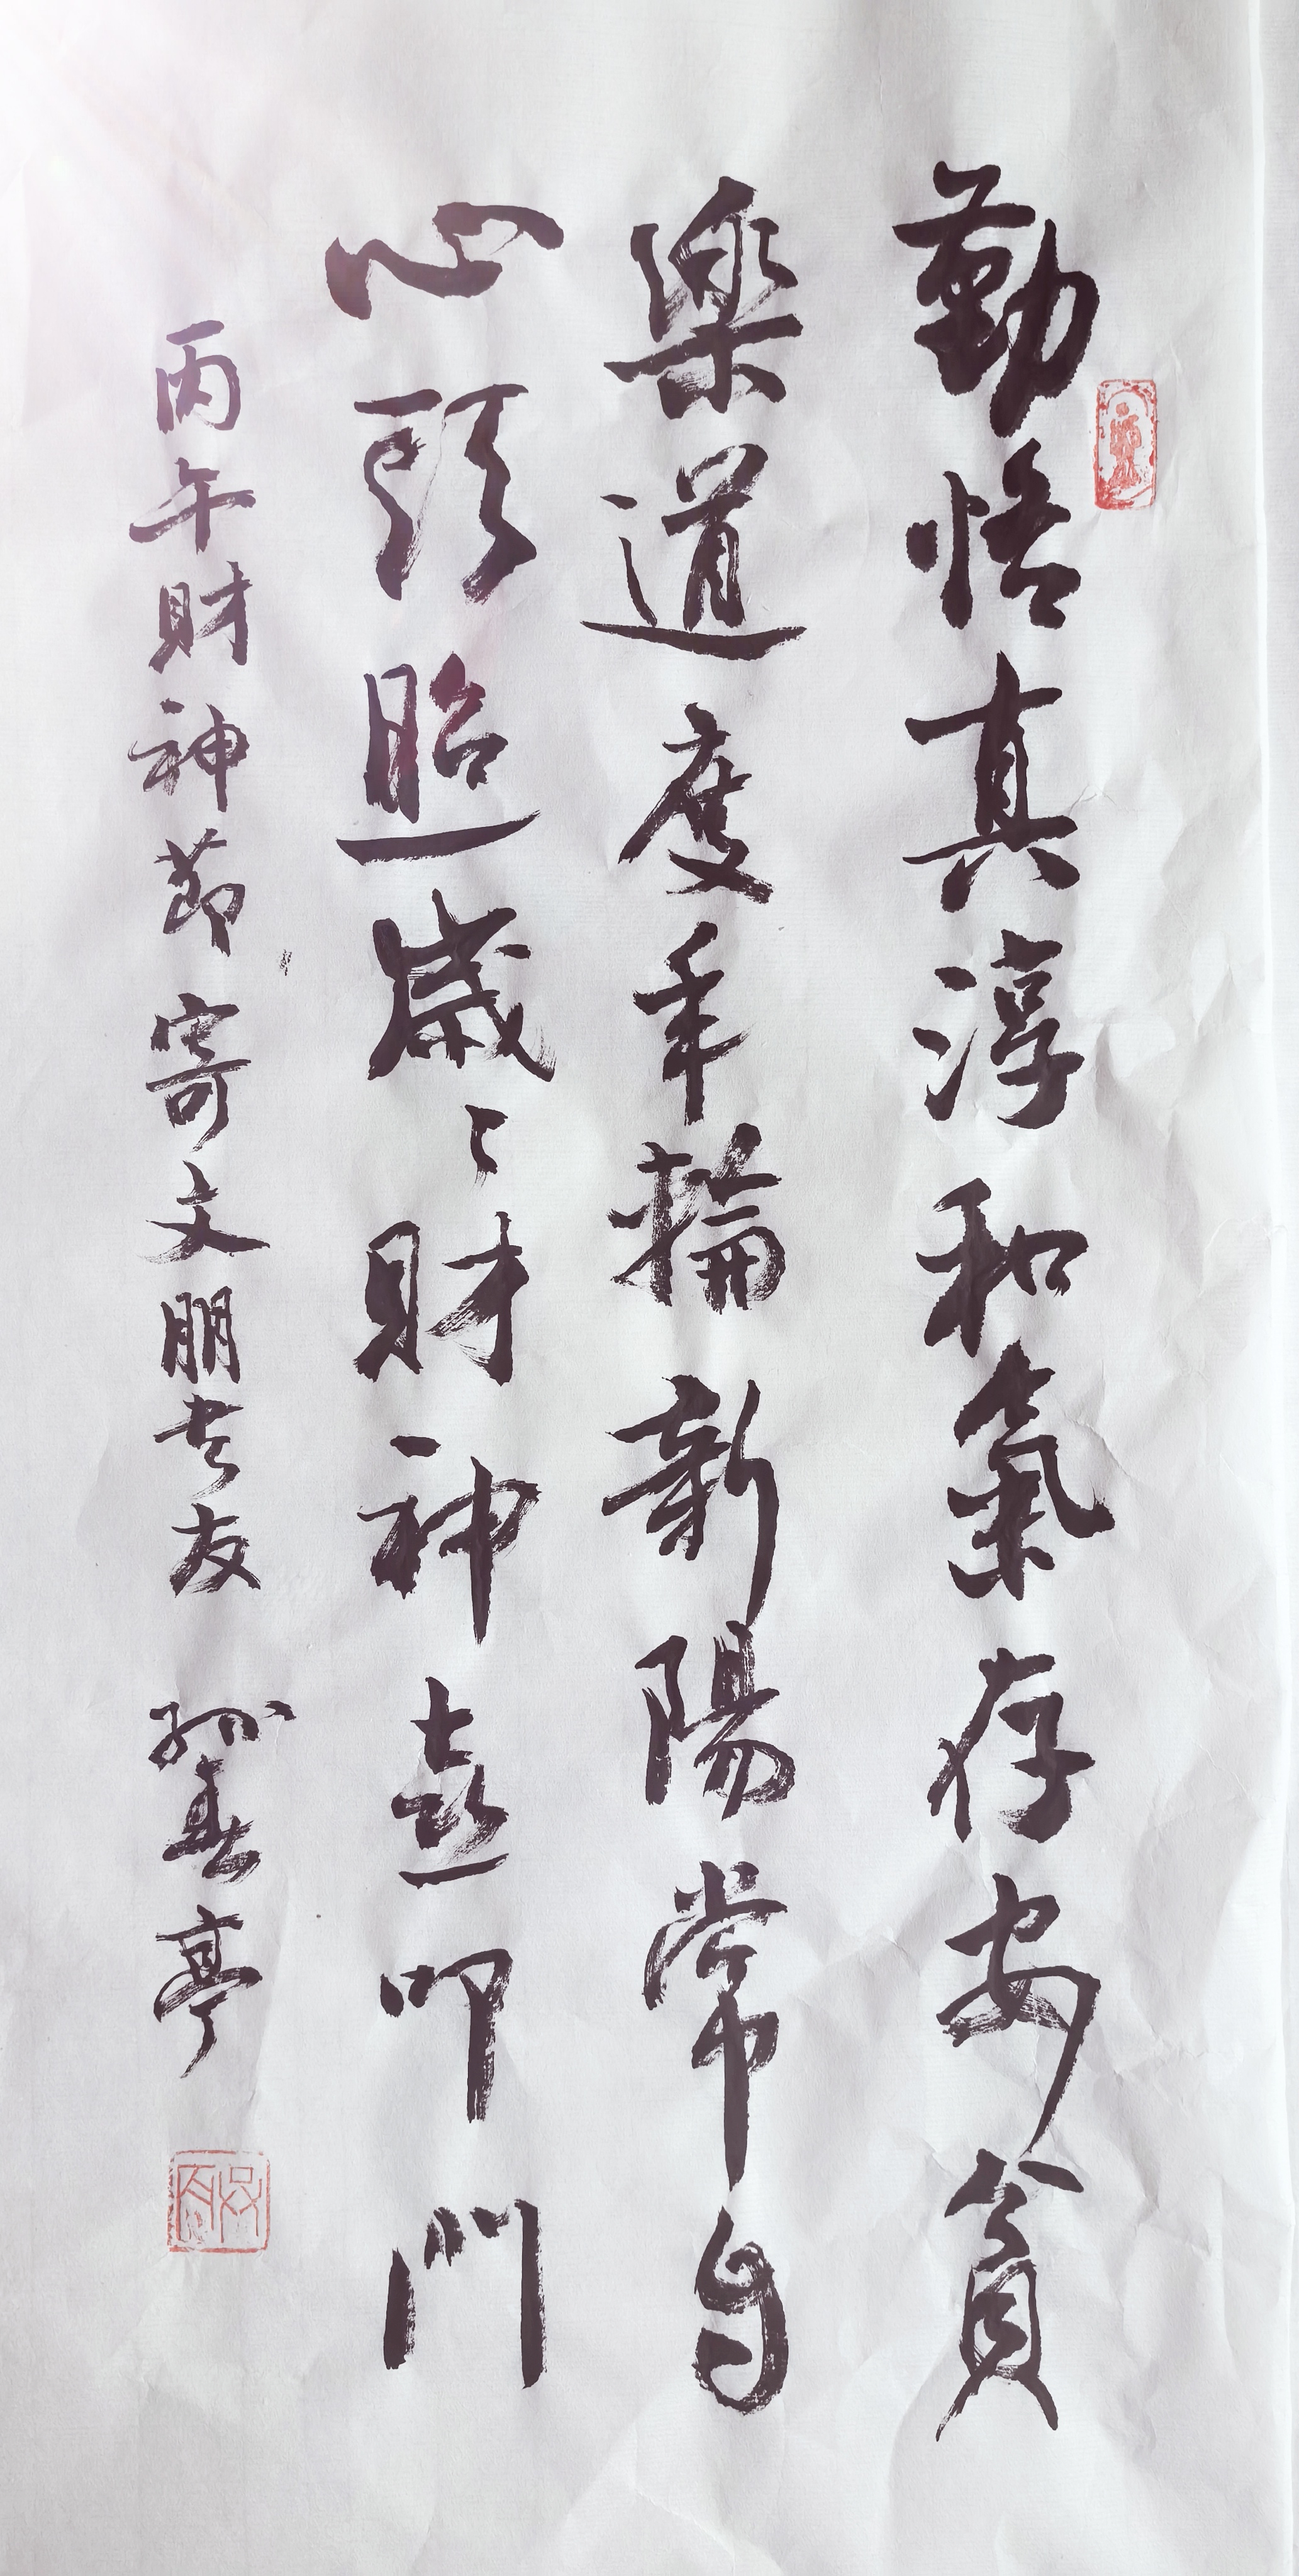 勤悟真淳和氣存安貧
樂道度年輪新陽常自
心頭照歲〻財神喜叩門
丙午財神節寄文朋老友 孫春亭